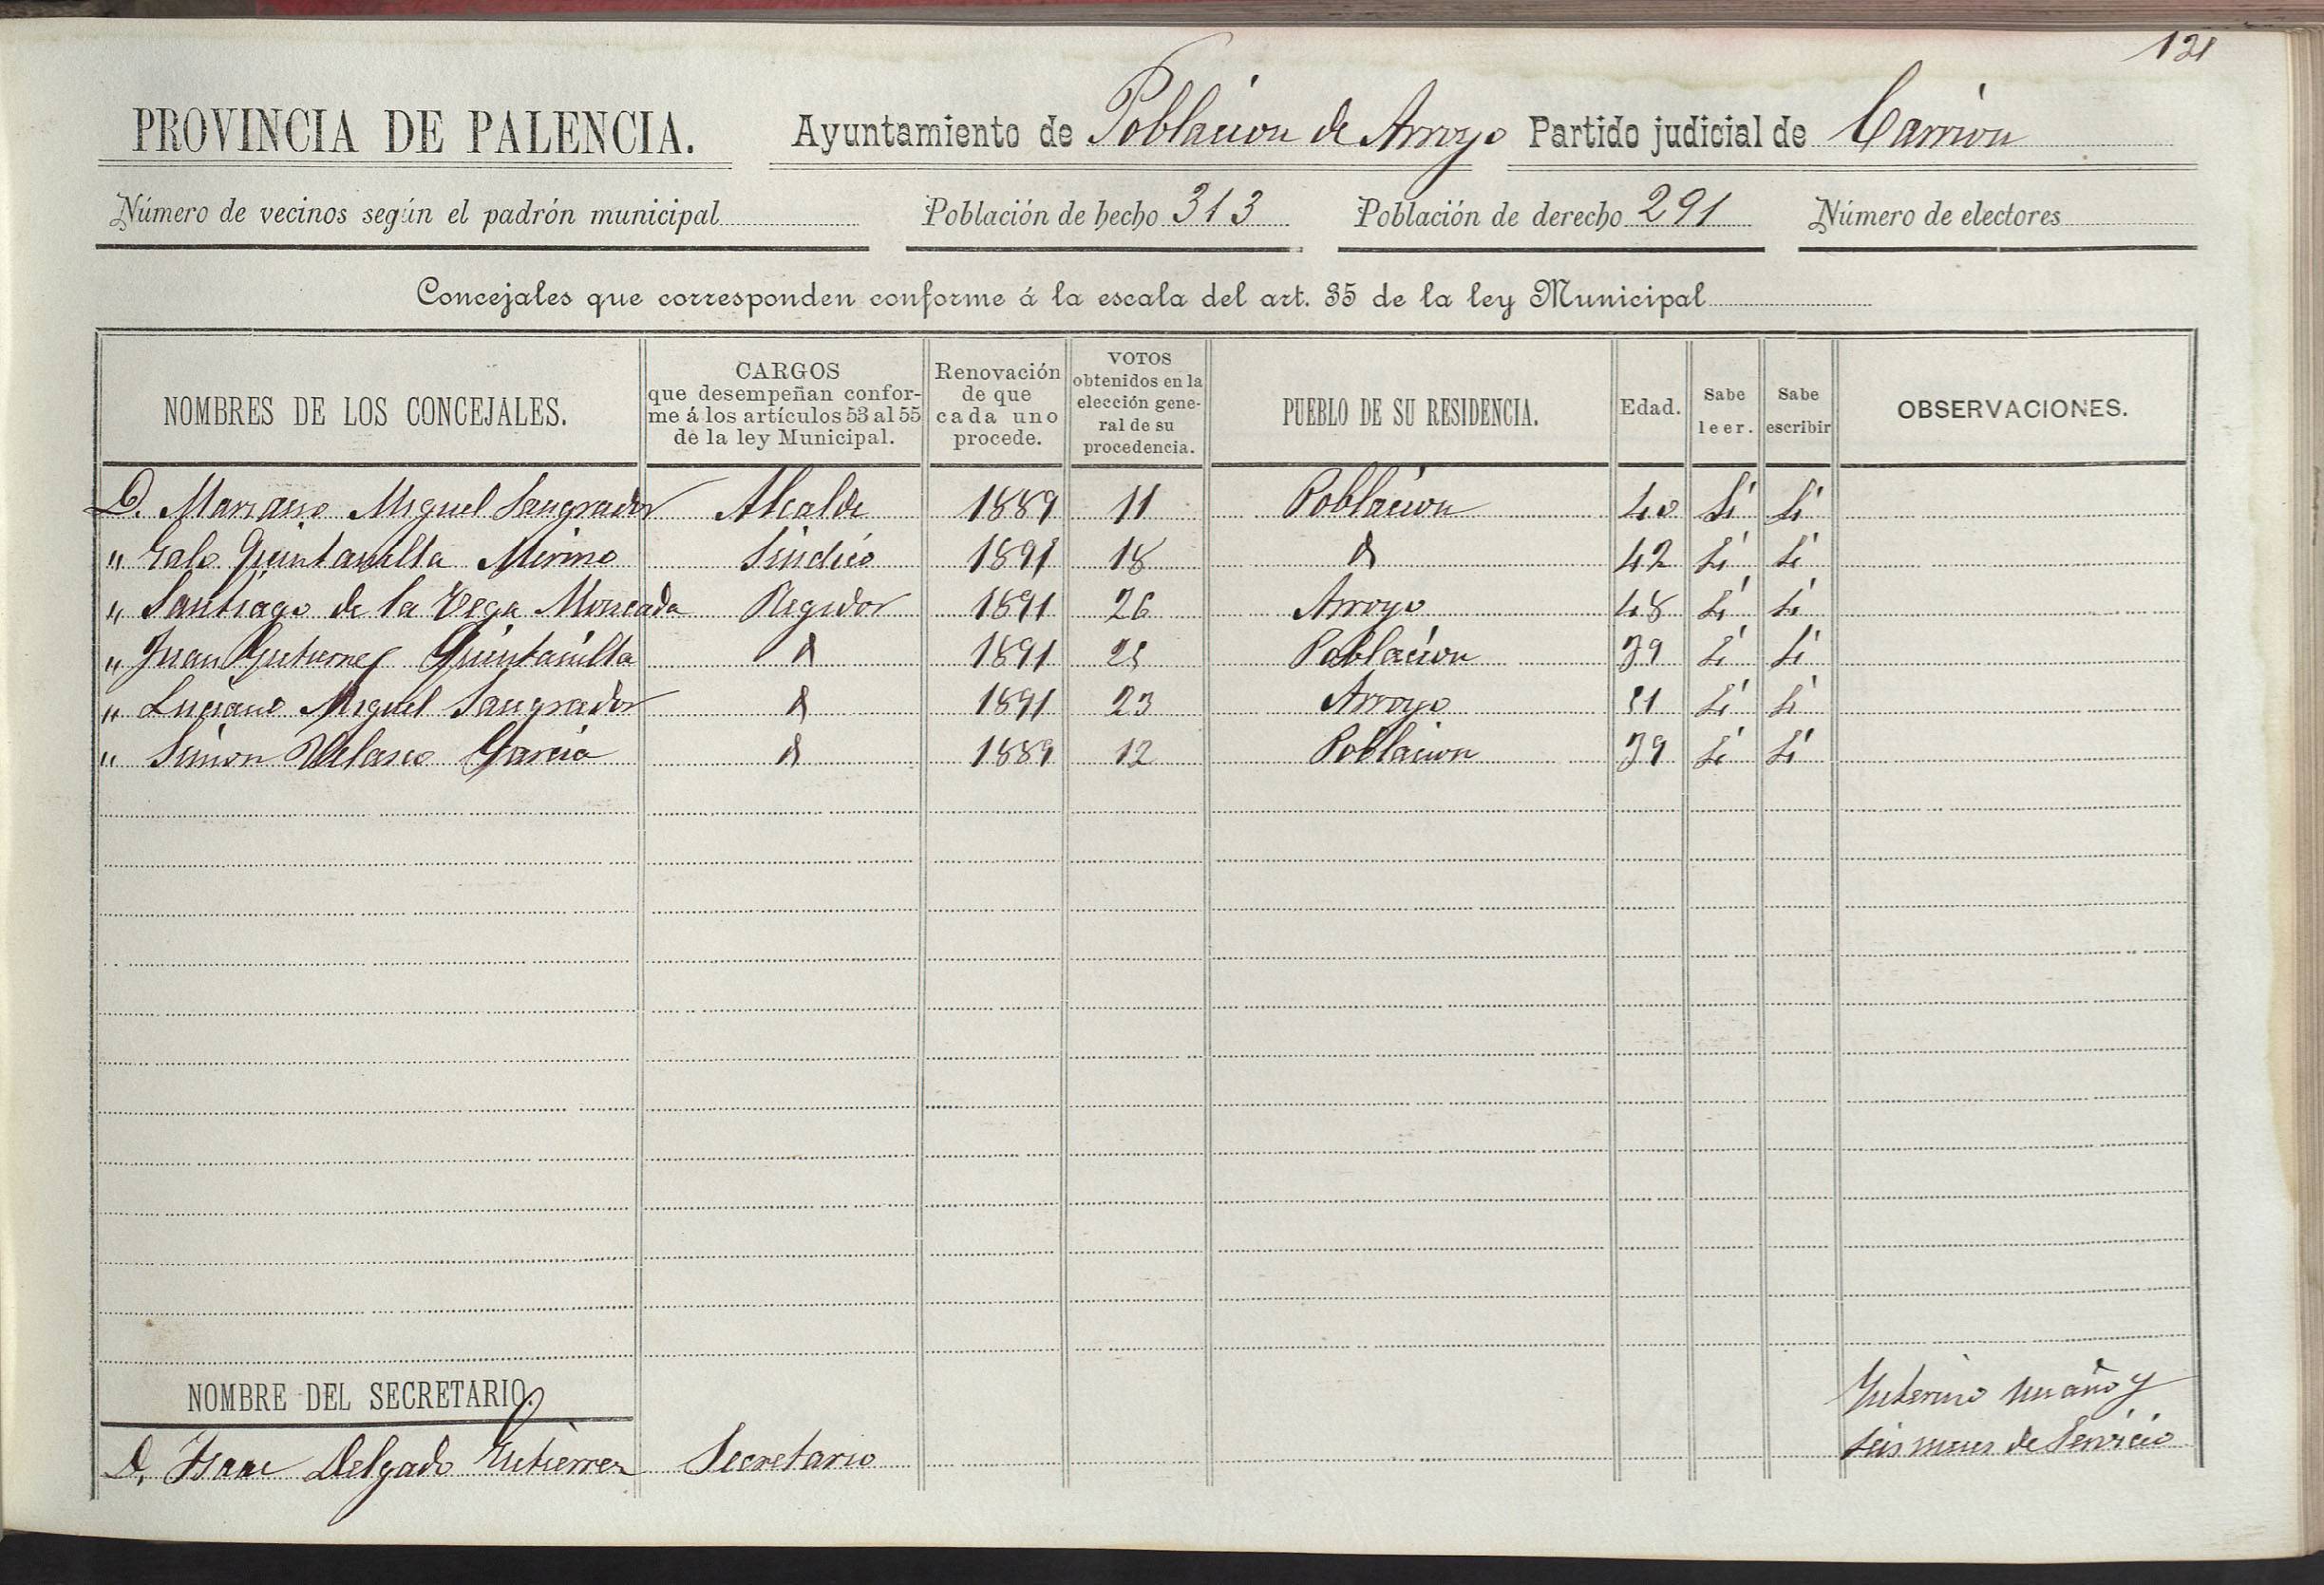 121
PROVINCIA DE PALENCIA. Ayuntamiento de Poblacion de Arroyo Partido judicial de Carrion
Número de vecinos según el padrón municipal Población de hecho 313 Población de derecho 291 Número de electores
Concejales que corresponden conforme á la escala del art. 35 de la ley Municipal
NOMBRES DE LOS CONCEJALES. CARGOS que desempeñan conforme á los artículos 53 al 55 de la ley Municipal. Renovación de que cada uno procede. VOTOS obtenidos en la elección general de su procedencia. PUEBLO DE SU RESIDENCIA. Edad. Sabe leer. Sabe escribir OBSERVACIONES.
D. Mariano Miguel Sangrador Alcalde 1889 11 Poblacion 40 Si Si
" Galo Quintanilla Merino Sindico 1891 18 d 42 Si Si
" Santiago de la Vega Moncada Regidor 1891 26 Arroyo 48 Si Si
" Juan Gutierrez Quintanilla d 1891 Poblacion 39 Si Si
" Luciano Miguel Sangrador d 1891 23 Arroyo Si Si
" Simon Velasco Garcia d 1889 12 Poblacion 39 Si Si
NOMBRE DEL SECRETARIO.
D. Isaac Delgado Gutierrez Secretario
Interino un año y
seis meses de Servicio